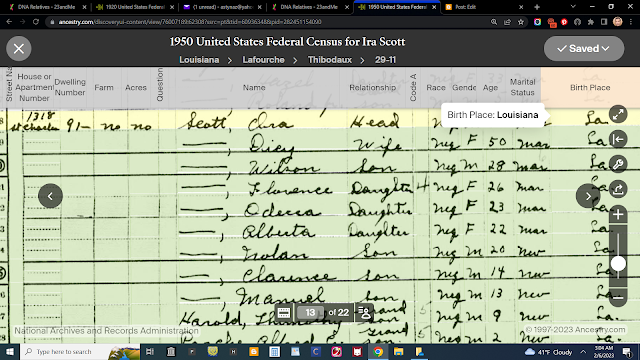 DNA Relatives - 23andMe
1920 United States Federal
(1 unread)
DNA Relatives - 23andMe
1950 United States Federal
Post: Edit
1950 United States Federal Census for Ira Scott
Saved
Louisiana > Lafourche > Thibodaux > 29-11
Street
House or Apartment Number
Dwelling Number
Farm
Acres
Question
Name
Relationship
Code A
Race
Gende
Age
Marital Status
Birth Place
1318
St Charles 91 no no Scott, Ira Head
Birth Place: Louisiana
Wife neg F 50 mar La
Wilson Son neg M 28 mar La
Florence Daughter 4 neg F 26 mar La
Odessa Daughter neg F 23 mar La
Alberta Daughter neg F 22 mar La
Nolan Son neg M 20 nev La
Clarence Son neg M 14 nev La
Manuel Son neg M 13 nev La
Harold, neg M 9 nev
grand neg M 2 nev
13 of 22
National Archives and Records Administration
© 1997-2023 Ancestry.com
Type here to search
41°F Cloudy
3:04 AM
2/6/2023